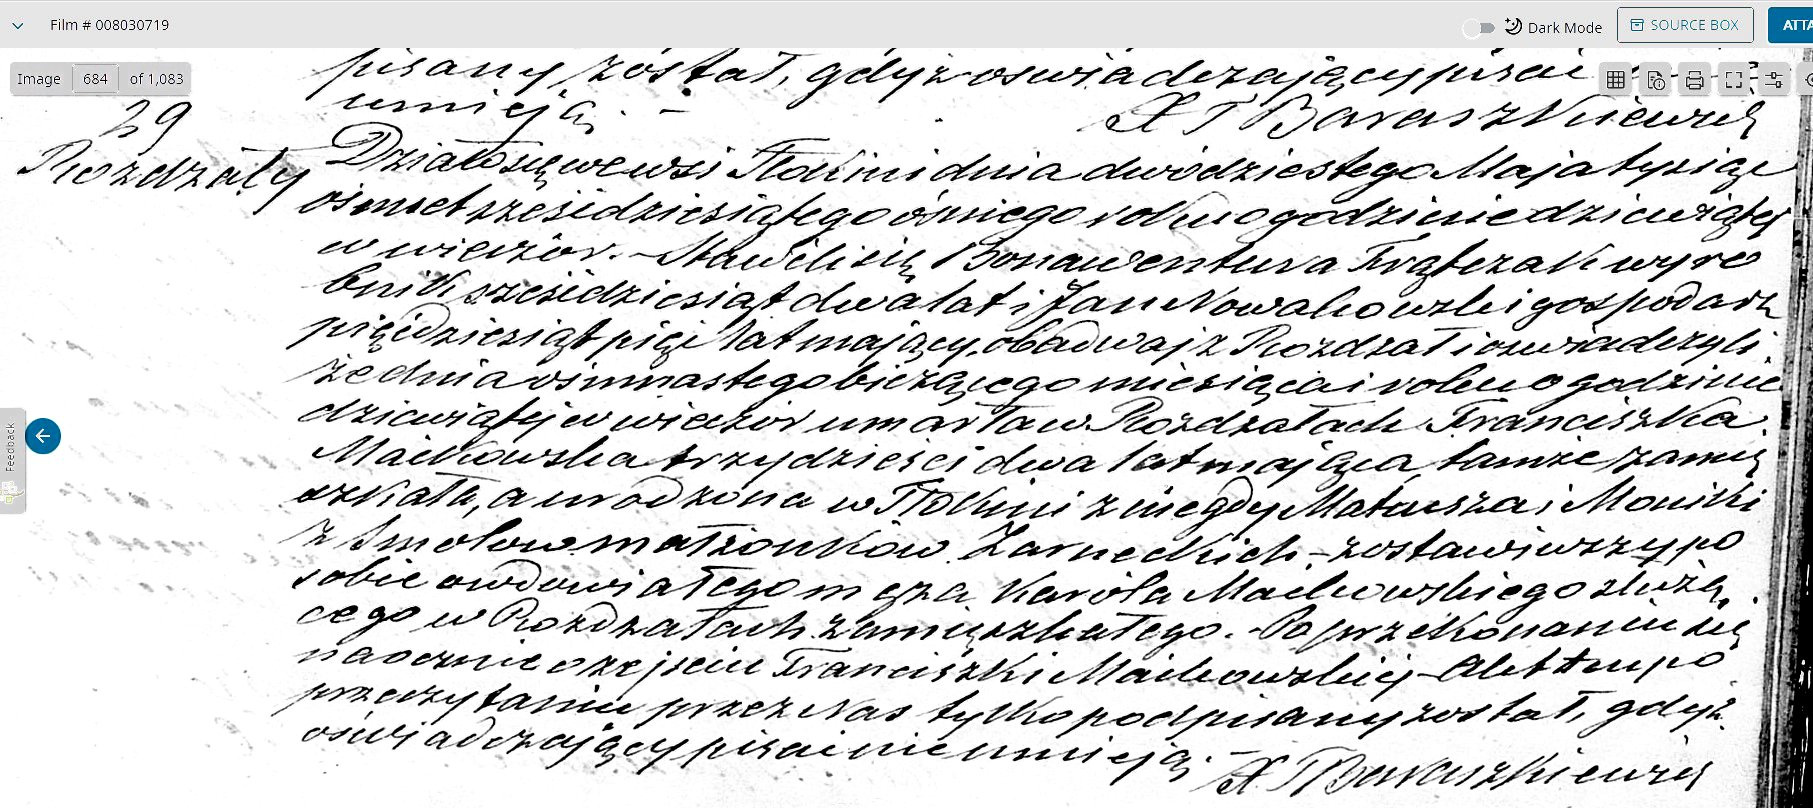 Film # 008030719
Dark Mode
SOURCE BOX
ATTA
Image 684 of 1,083
Feedback
pisany został, gdyż oświadczający pisać
umieją. –
X T Baraszkiewicz
29
Rozdzały
Działo się we wsi Tłokini dnia dwódziestego Maja tysiąc
ośmset sześćdziesiątego ósmego roku o godzinie dziewiątej
w wieczór. – Stawili się Bonawentura Frątczak wyro
bnik sześćdziesiąt dwa lat i Jan Nowakowski gospodarz
pięćdziesiąt pięć lat mający, obadwaj z Rozdzał i oświadczyli
że dnia ośmnastego bieżącego miesiąca i roku o godzinie
dziewiątej w wieczór umarła w Rozdzałach Franciszka
Maćkowska trzydzieści dwa lat mająca, tamże zamię
szkała, a urodzona w Tłokini z niegdy Mateusza i Moniki
z małżonków Żarneckich, – zostawiwszy po
sobie owdowiałego męża Karola Maćkowskiego służą
cego w Rozdzałach zamięszkałego. – Po przekonaniu się
naocznie o zejściu Franciszki Maćkowskiej – Akt ten po
przeczytaniu przez Nas tylko podpisany został, gdyż
oświadczający pisać nie umieją.
X T Baraszkiewicz